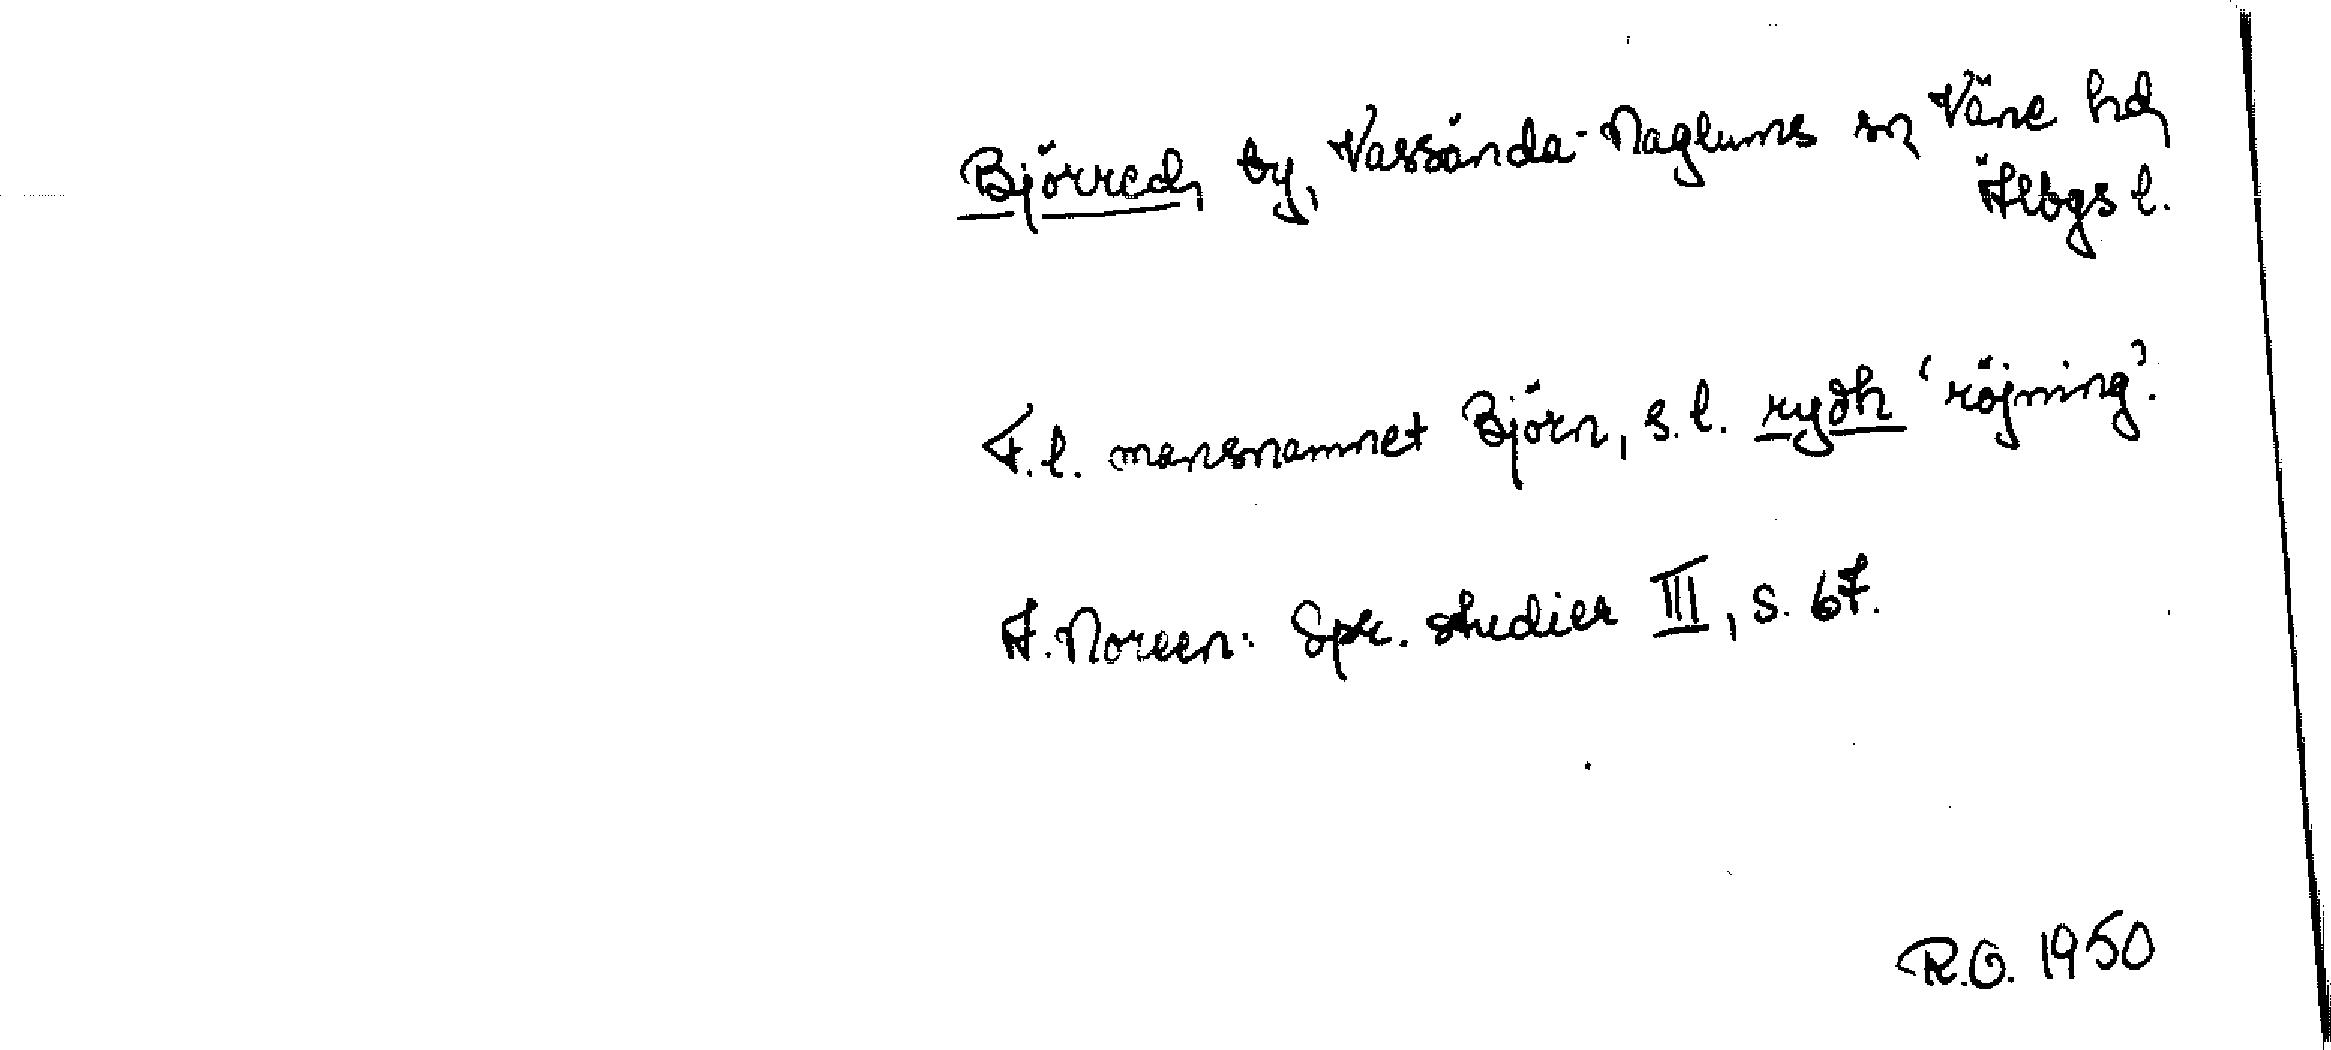 Björred, by, Vassända-Naglums sn Väne hd
Älbgs l.
F.l. mansnamnet Björn, s.l. rydh 'röjning'.
A. Noreen: Spr. studier III, s. 67.
R.O. 1950